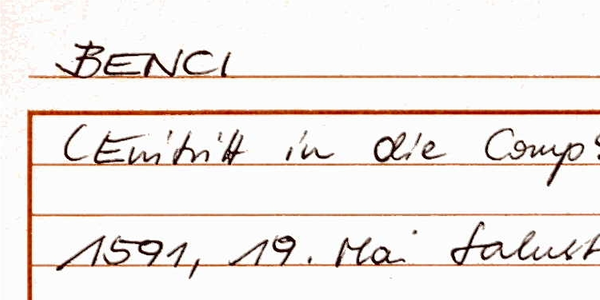 BENCI
(Eintritt in die Comp
1591, 19. Mai Salust